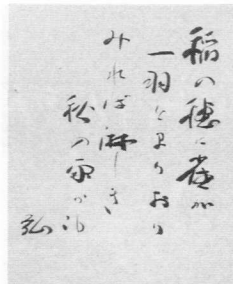 稲の穂に雀が
一羽とまりおり
みれば淋しき
秋の雨かも
弘